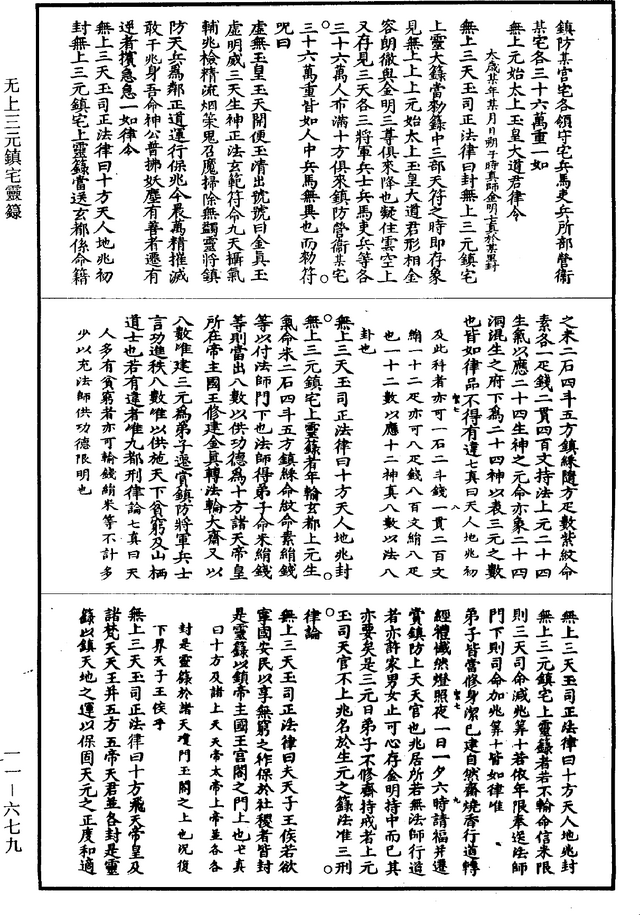 鎮防某官宅各領守宅兵馬吏兵所部營衛
某宅各三十六萬重一如
無上元始太上玉皇大道君律令
太歲某年某月日朔子時真師金明七真於某里封
無上三天玉司正法律曰封無上三元鎮宅
上靈大籙當勑籙中三部天符之時即存象
見無上上元始太上玉皇大道君形相金
容朗徹與金明三尊俱來降也凝住雲空上
又存見三天各三將軍兵士兵馬吏兵等各
三十六萬人布滿十方俱來鎮防營衛某宅
三十六萬重皆如人中兵馬無異也而勑符
呪曰
虛無玉皇王天開便玉清出號號曰金真玉
虛明威三天生神正法玄範符命九天攝氣
輔兆檢精流烟策鬼召魔掃除無蠲靈將鎮
防天兵為鄰正道運行保兆今晨萬精摧滅
敢干兆身吾命神公普拂妖塵有善者還有
逆者擯急急一如律令
無上三天玉司正法律曰十方天人地兆初
封無上三元鎮宅上靈籙當送玄都係命籍
之米二石四斗五方鎮綵隨方疋數紫紋命
素各一疋錢二貫四百文持法上元二十四
生氣以應二十四生神之元命亦象二十四
洞混生之府下為二十四神以表三元之數
也皆如律品不得有違七真曰天人地兆初
及此科者亦可一石二斗錢一貫二百文
絹一十二疋亦可八疋錢八百文絹八疋
也一十二數以應十二神真八數以法八
卦也
無上三天玉司正法律曰十方天人地兆封
無上三元鎮宅上靈籙者年輸玄都上元生
氣命米二石四斗五方鎮綵命紋命素絹錢
等以付法師門下也法師得弟子命米絹錢
等則當出八數以供功德為十方諸天帝皇
所在帝主國王修建金真轉法輪大齋又以
八數唯建三元為弟子還賞鎮防將軍兵士
言功進秩八數唯以供施天下貧窮及山栖
道士也若有違者唯九都刑律論七真曰天
人多有貧窮者亦可輸錢絹米等不計多
少以充法師供功德限明也
無上三天玉司正法律曰十方天人地兆封
無上三元鎮宅上靈籙者若不輸命信米限
則三天司命減兆筭十若依年限奉送法師
門下則司命加兆筭十皆如律唯
弟子皆當修身潔己建自然齋燒香行道轉
經禮懺然燈照夜一日一夕六時請福并遷
賞鎮防上天天官也兆居所若無法師行道
者亦許家男女止可心存金明持中而已其
亦要矣是三元日弟子不修齋持戒者上元
玉司天官不上兆名於生元之籙法准三刑
律論
無上三天玉司正法律曰夫天子王侯若欲
寧國安民以享無窮之祚保於社稷者皆封
是靈籙以鎖帝主國王宫閣之門上也七真
曰十方及諸上天天帝太帝上帝並各各
封是靈籙於諸天瓊門玉閣之上也況復
下界天子王侯乎
無上三天玉司正法律曰十方飛天帝皇及
諸梵天天王并五方五帝天君並各封是靈
籙以鎮天地之運以保固天元之正度和適
无上三元鎮宅靈籙
一一—六七九